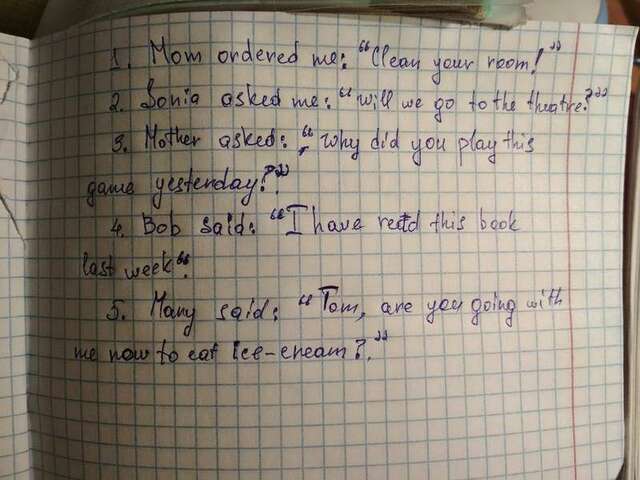 1. Mom ordered me: "Clean your room!"
2. Sonia asked me: "will we go to the theatre?"
3. Mother asked: "Why did you play this
game yesterday?"
4. Bob said: "I have read this book
last week".
5. Mary said: "Tom, are you going with
me now to eat ice-cream?."